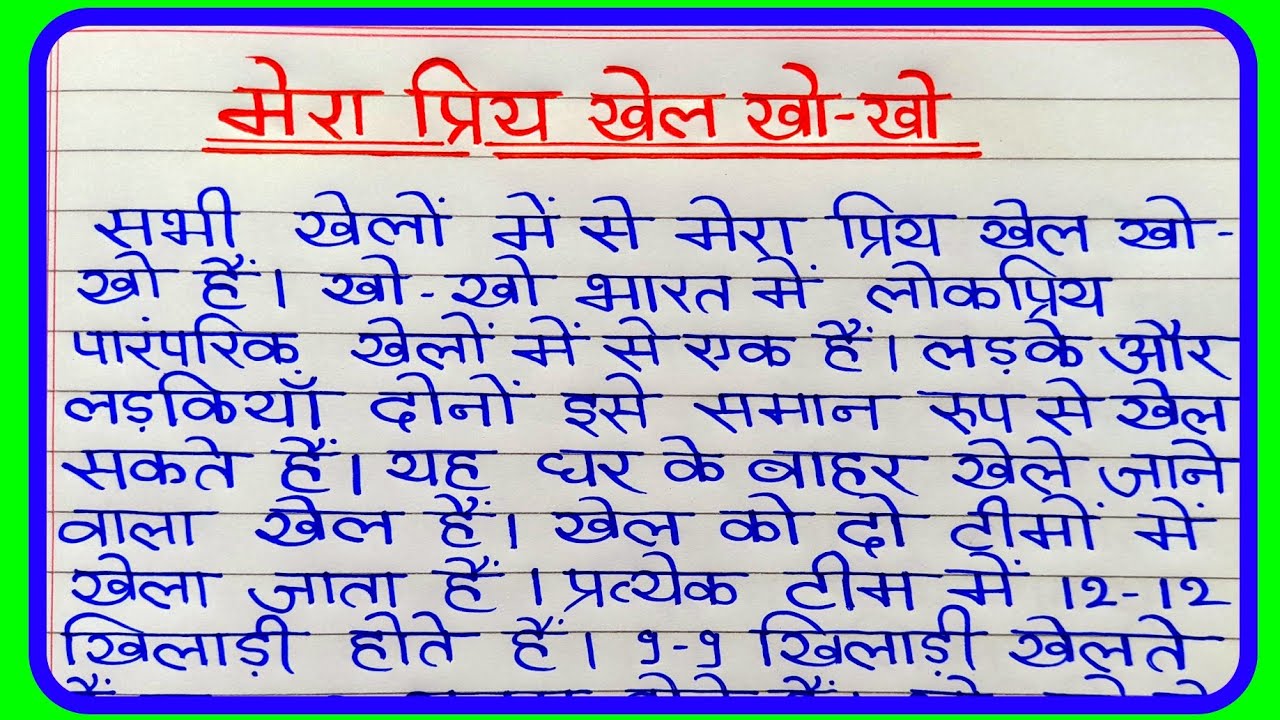 मेरा प्रिय खेल खो-खो
सभी खेलों में से मेरा प्रिय खेल खो-
खो हैं। खो-खो भारत में लोकप्रिय
पारंपरिक खेलों में से एक हैं। लड़के और
लड़कियाँ दोनों इसे समान रुप से खेल
सकते हैं। यह घर के बाहर खेले जाने
वाला खेल हैं। खेल को दो टीमों में
खेला जाता हैं। प्रत्येक टीम में 12-12
खिलाड़ी होते हैं। 9-9 खिलाड़ी खेलते